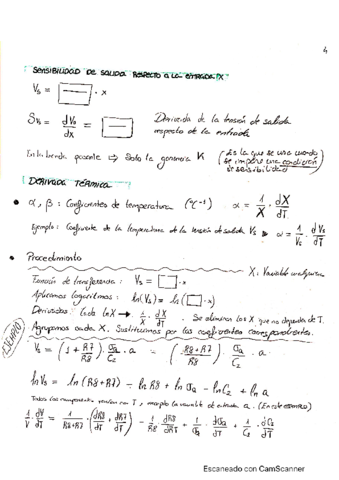 4
SENSIBILIDAD DE SALIDA RESPECTO A LA ENTRADA X
V₀ = □ · x
S_V₀ = dV₀/dx = □ Derivada de la tensión de salida respecto de la entrada
⇒ Solo la ganancia K (Es la que se usa cuando se impone una condición de sensibilidad)
DERIVADA TÉRMICA
• α, β : Coeficientes de temperatura (°C⁻¹) α = 1/X · dX/dT
Ejemplo: Coeficiente de la temperatura de la tensión de salida V₀ ⇒ α = 1/V₀ · dV₀/dT
• Procedimiento
X: Variable cualquiera
Función de transferencia: V₀ = □ · x
Aplicamos logaritmos: ln(V₀) = ln(□ · x)
Derivadas: Cada lnX → 1/X · dX/dT. Se eliminan los X que no dependan de T.
Agrupamos cada X. Sustituimos por los coeficientes correspondientes.
EJEMPLO
V₀ = (1 + R7/R8) · σa/C₂ · a = (R8+R7/R8) · σa/C₂ · a
lnV₀ = ln(R8+R7) - lnR8 + lnσa - lnC₂ + ln a
Todos los componentes varían con T, excepto la variable de entrada a. (En este ejemplo)
1/V · dV/dT = 1/R8+R7 · (dR8/dT + dR7/dT) - 1/R8 · dR8/dT + 1/σa · dσa/dT + 1/C₂ · dC₂/dT
Escaneado con CamScanner